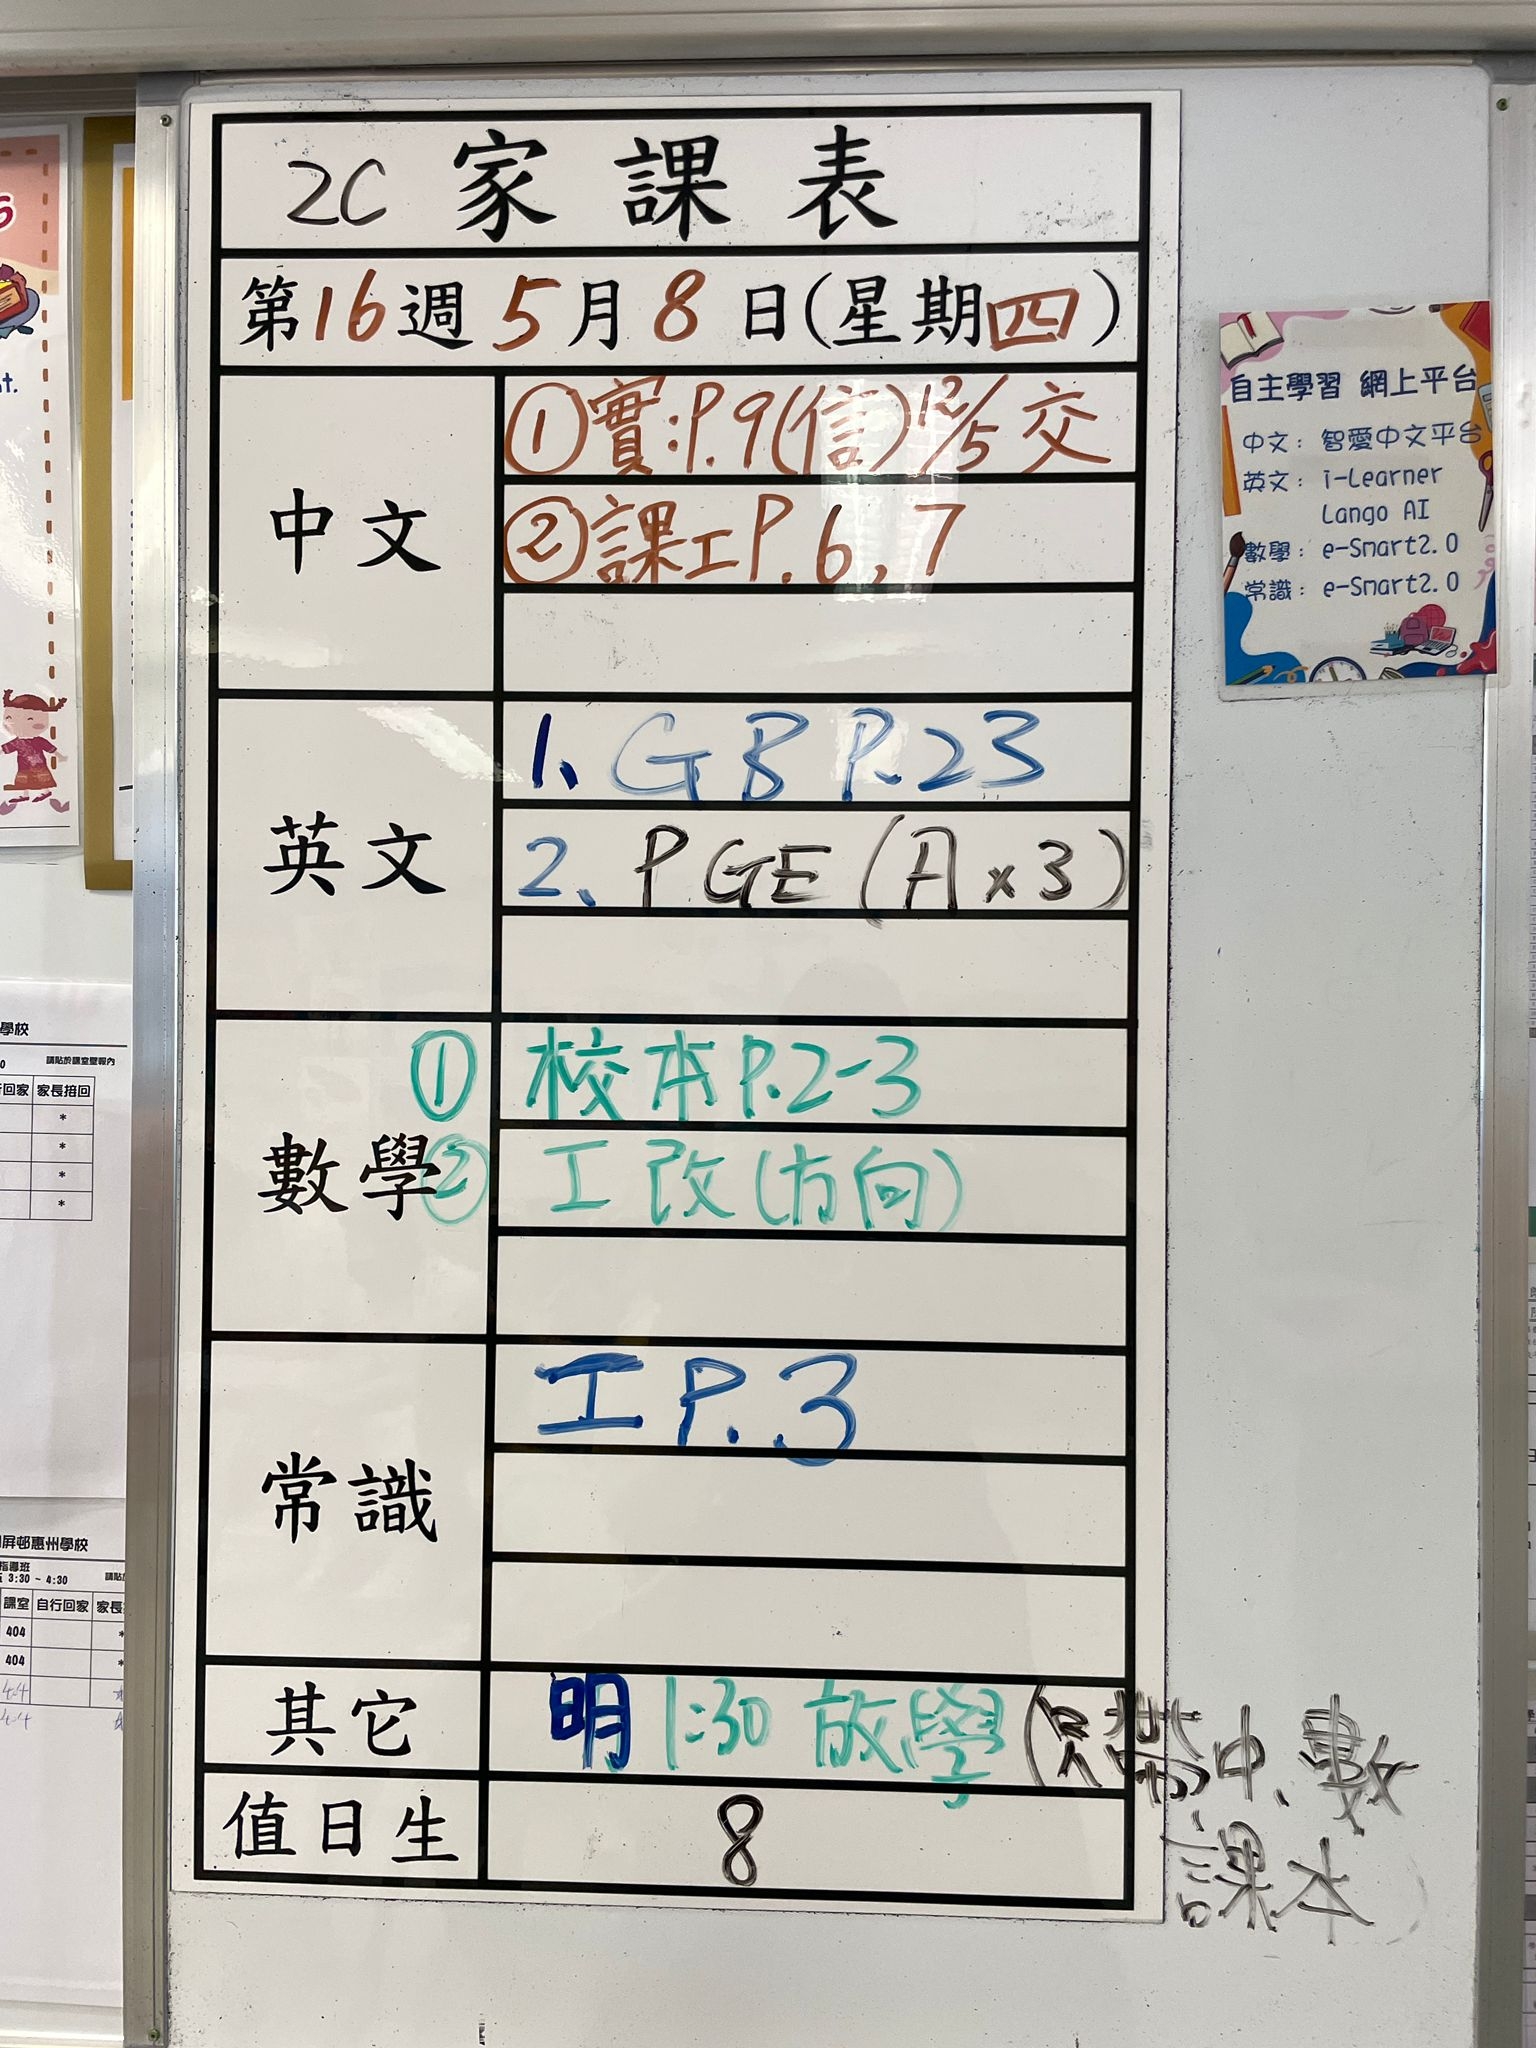 2C 家課表
第16週5月8日(星期四)
中文
①實:P.9(信)12/5交
②課工P.6,7
英文
1、GB P.23
2、PGE (A x 3)
數學
① 校本P.2-3
② 工改(方向)
常識
工P.3
其它
明1:30放學(只帶中、數
課本)
值日生
8
自主學習 網上平台
中文：智愛中文平台
英文：i-Learner
Lango AI
數學：e-Smart2.0
常識：e-Smart2.0
學校
請貼於課室壁報內
回家 家長接回
*
*
*
*
屏邨惠州學校
指導班
3:30 ~ 4:30
課室 自行回家 家長
404
404
404
404